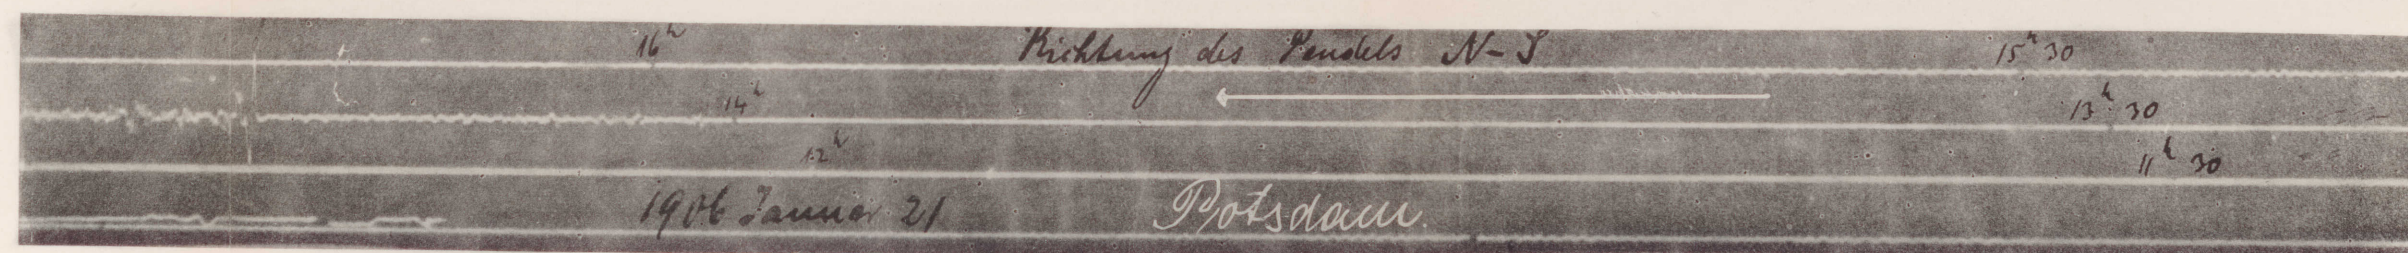 16ʰ Richtung des Pendels N-S 15ʰ 30
14ʰ 13ʰ 30
12ʰ 11ʰ 30
1906 Januar 21 Potsdam.